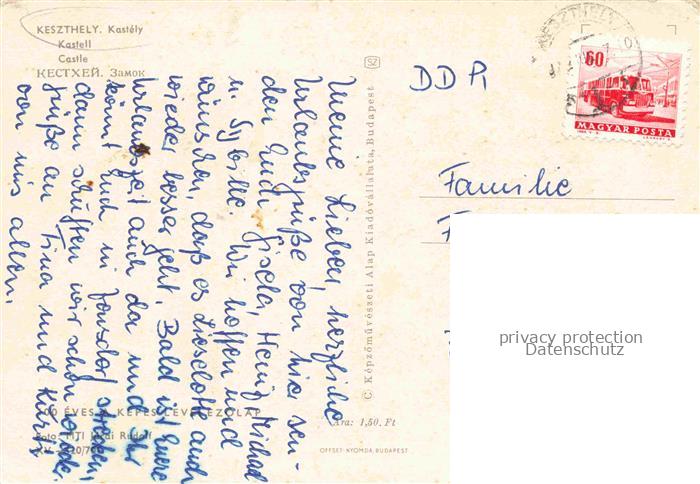 KESZTHELY. Kastély
Kastell
Castle
КЕСТХЕЙ. Замок
Meine Lieben, herzliche
Urlaubsgrüße von hier sen-
den Euch Gisela, Heinz, Michael
u. Sybille. Wir hoffen und
wünschen, daß es Lieselotte auch
wieder besser geht. Bald ist Eure
Urlaubszeit auch da und Ihr
könnt Euch in Jonsdorf streiten,
dann schuften wir schon wieder.
Grüße an Tina und Kurt
von uns allen.
100 ÉVES A KÉPES LEVELEZŐLAP
Foto: MTI Járai Rudolf
Ára: 1,50. Ft
OFFSET-NYOMDA, BUDAPEST
C Képzőművészeti Alap Kiadóvállalata, Budapest
SZ
DDR
KESZTHELY
60
MAGYAR POSTA
Familie
privacy protection
Datenschutz